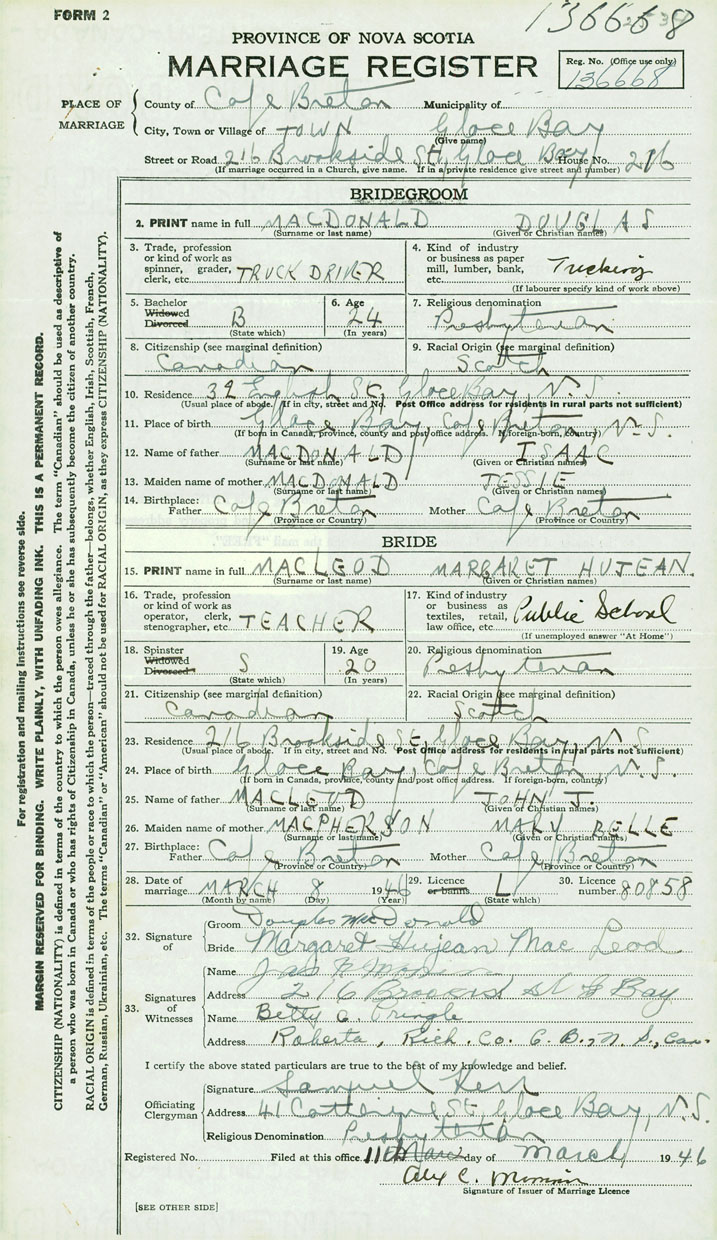 FORM 2
136668
PROVINCE OF NOVA SCOTIA
MARRIAGE REGISTER
Reg. No. (Office use only)
136668
PLACE OF MARRIAGE
County of Cape Breton Municipality of
City, Town or Village of TOWN Glace Bay
(Give name)
Street or Road 216 Brookside St, Glace Bay House No. 216
(If marriage occurred in a Church, give name. If in a private residence give street and number)
BRIDEGROOM
2. PRINT name in full MACDONALD DOUGLAS
(Surname or last name) (Given or Christian names)
3. Trade, profession or kind of work as spinner, grader, clerk, etc. TRUCK DRIVER
4. Kind of industry or business as paper mill, lumber, bank, etc. Trucking
(If labourer specify kind of work above)
5. Bachelor Widowed Divorced B
(State which)
6. Age 24
(In years)
7. Religious denomination
Presbyterian
8. Citizenship (see marginal definition)
Canadian
9. Racial Origin (see marginal definition)
Scotch
10. Residence 32 English St, Glace Bay, N.S.
(Usual place of abode. If in city, street and No. Post Office address for residents in rural parts not sufficient)
11. Place of birth Glace Bay, Cape Breton, N.S.
(If born in Canada, province, county and post office address. If foreign-born, country)
12. Name of father MACDONALD ISAAC
(Surname or last name) (Given or Christian names)
13. Maiden name of mother MACDONALD JESSIE
(Surname or last name) (Given or Christian names)
14. Birthplace: Father Cape Breton Mother Cape Breton
(Province or Country) (Province or Country)
BRIDE
15. PRINT name in full MACLEOD MARGARET HUJEAN.
(Surname or last name) (Given or Christian names)
16. Trade, profession or kind of work as operator, clerk, stenographer, etc. TEACHER
17. Kind of industry or business as textiles, retail, law office, etc. Public School
(If unemployed answer "At Home")
18. Spinster Widowed Divorced S
(State which)
19. Age 20
(In years)
20. Religious denomination
Presbyterian
21. Citizenship (see marginal definition)
Canadian
22. Racial Origin (see marginal definition)
Scotch
23. Residence 216 Brookside St, Glace Bay, N.S
(Usual place of abode. If in city, street and No. Post Office address for residents in rural parts not sufficient)
24. Place of birth Glace Bay, Cape Breton, N.S.
(If born in Canada, province, county and post office address. If foreign-born, country)
25. Name of father MACLEOD JOHN J.
(Surname or last name) (Given or Christian names)
26. Maiden name of mother MACPHERSON MARY BELLE
(Surname or last name) (Given or Christian names)
27. Birthplace: Father Cape Breton Mother Cape Breton
(Province or Country) (Province or Country)
28. Date of marriage MARCH 8 1946
(Month by name) (Day) (Year)
29. Licence or banns L
(State which)
30. Licence number 80858
32. Signature of
Groom Douglas MacDonald
Bride Margaret Hujean Mac Leod
33. Signatures of Witnesses
Name
Address 216 St G Bay
Name Betty C. Pringle
Address Roberta, Rich. Co. C. B., N. S., Can.
I certify the above stated particulars are true to the best of my knowledge and belief.
Officiating Clergyman
Signature Samuel Kerr
Address 41 Catherine St, Glace Bay, N.S.
Religious Denomination Presbyterian
Registered No. Filed at this office 11th day of March 1946
Alex C.
Signature of Issuer of Marriage Licence
[SEE OTHER SIDE]
For registration and mailing instructions see reverse side.
MARGIN RESERVED FOR BINDING. WRITE PLAINLY, WITH UNFADING INK. THIS IS A PERMANENT RECORD.
CITIZENSHIP (NATIONALITY) is defined in terms of the country to which the person owes allegiance. The term "Canadian" should be used as descriptive of
a person who was born in Canada or who has rights of Citizenship in Canada, unless he or she has subsequently become the citizen of another country.
RACIAL ORIGIN is defined in terms of the people or race to which the person—traced through the father—belongs, whether English, Irish, Scottish, French,
German, Russian, Ukrainian, etc. The terms "Canadian" or "American" should not be used for RACIAL ORIGIN, as they express CITIZENSHIP (NATIONALITY).